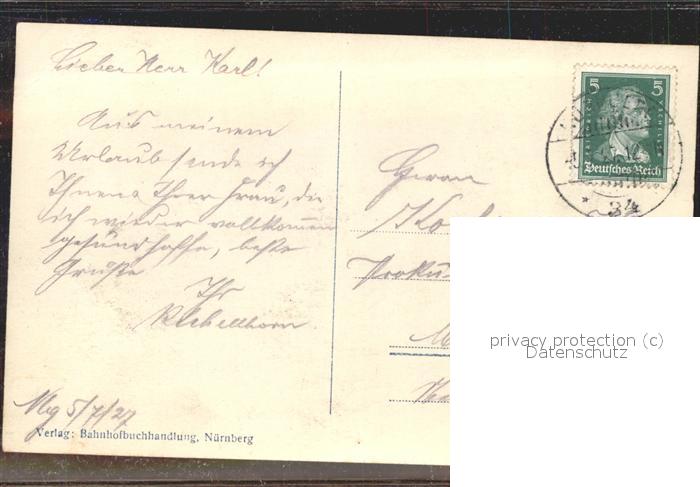 Lieber Herr Karl!
Aus meinem
Urlaub sende ich
Ihnen u Ihrer Frau, die
ich wieder vollkommen
gesund hoffe, beste
Grüße
Ihr
5/7/27
Verlag: Bahnhofbuchhandlung, Nürnberg
5 5
FRIEDRICH V SCHILLER
Deutsches Reich
34
Herrn
Proku-
privacy protection (c)
Datenschutz